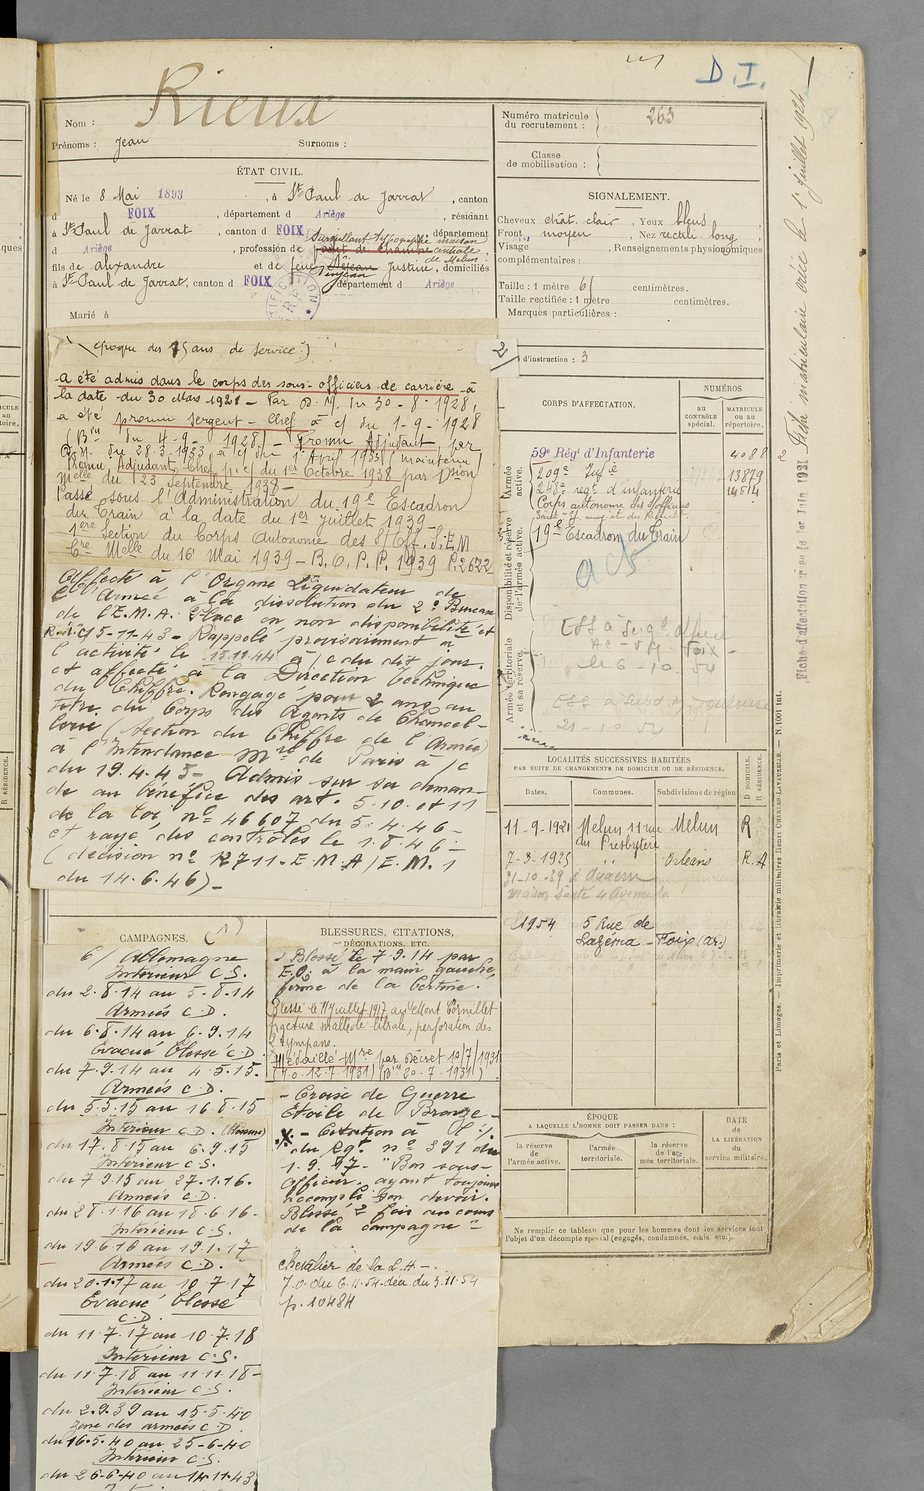 D.I.
Nom : Rieux
Prénoms : Jean Surnoms :
Numéro matricule du recrutement : 263
Classe de mobilisation :
ÉTAT CIVIL.
Né le 8 Mai 1893, à St Paul de Jarrat, canton
d FOIX, département d Ariège, résidant
à St Paul de Jarrat, canton d FOIX, département
d Ariège, profession de Surveillant maison centrale de Melun
fils de Alexandre et de feue Justine, domiciliés
à St Paul de Jarrat, canton d FOIX département d Ariège
Marié à
SIGNALEMENT.
Cheveux chât. clair, Yeux bleus
Front moyen, Nez rectil. long
Visage, Renseignements physionomiques
complémentaires :
Taille : 1 mètre 61 centimètres.
Taille rectifiée : 1 mètre centimètres.
Marques particulières :
2
d'instruction : 3
(époque des 15 ans de service)
a été admis dans le corps des sous-officiers de carrière à
la date du 30 Mars 1928 - Par D. M. du 30-8-1928,
a été promu Sergent-Chef à c/ du 1-9-1928
du 4-9-1928) - Promu Adjudant par
D.M. du 28-3-1933 à c/ du 1 Avril 1933 (maintenu)
Promu Adjudant Chef p. c/ du 1er Octobre 1938 par
Melle du 23 septembre 1938 -
Passé sous l'Administration du 19e Escadron
du Train à la date du 1er juillet 1939 -
1ère Section du Corps Autonome des S/Off. d'E.M
Melle du 16 Mai 1939 - B.O.P.P. 1939 P. 2622
Affecté à l'Organe Liquidateur de
l'Armée à la dissolution du 2e Bureau
de l'E.M.A. Placé en non disponibilité et
15-11-43 - Rappelé provisoirement à
l'activité le 15.11.44 à/c du dit jour.
et affecté à la Direction Technique
du Chiffre. Rengagé pour 2 ans au
titre du Corps des Agents de Chancel-
lerie (Section du Chiffre de l'Armée)
à l'Intendance Mre de Paris à/c
du 19.4.45 - Admis sur sa deman-
de au bénéfice des art. 5.10. et 11
de la loi n° 46607 du 5-4-46 -
et rayé des contrôles le 1.8.46 -
(décision n° 12711-E.M.A/E.M.1
du 14.6.46) -
CORPS D'AFFECTATION.
NUMÉROS
AU CONTRÔLE SPÉCIAL.
MATRICULE OU AU RÉPERTOIRE.
Armée active.
Disponibilité et réserve de l'armée active.
Armée territoriale et sa réserve.
59e Rég' d'Infanterie 4088
209e Infie 13879
248e regt d'infanterie 14514
Corps autonome des s/officiers
19e Escadron du Train
le 6-10-54
21-10-54
LOCALITÉS SUCCESSIVES HABITÉES
PAR SUITE DE CHANGEMENTS DE DOMICILE OU DE RÉSIDENCE.
Dates. Communes. Subdivisions de région D DOMICILE. R RÉSIDENCE.
11-9-1921 Melun 11 rue Melun R
du Presbytère
7-3-1925 " Orléans R.A
1954 5 Rue de
Lazéma - Foix (Ar.)
CAMPAGNES. (1)
c/ Allemagne
Intérieur C.S.
du 2.8.14 au 5-8-14
Armées C.D.
du 6.8.14 au 6.9.14
Evacué blessé C.D.
du 7.9.14 au 4.5.15.
Armées C.D.
du 5.5.15 au 16.8.15
Intérieur C.D.
du 17.8.15 au 6.9.15
Intérieur C.S.
du 7.9.15 au 27.1.16.
Armées C.D.
du 28.1.16 au 18.6.16-
Intérieur C.S.
du 19.6.16 au 19.1.17
Armées C.D.
du 20.1.17 au 10.7.17
Evacué blessé
C.D.
du 11.7.17 au 10.7.18
Intérieur C.S.
du 11.7.18 au 11.11.18-
Intérieur C.S.
du 2.9.39 au 15-5-40
Zone des armées C.D.
du 16-5-40 au 25-6-40
Intérieur C.S.
du 26-6-40 au 14-11-43
BLESSURES, CITATIONS,
DÉCORATIONS, ETC.
Blessé le 7.9.14 par
E.O. à la main gauche
ferme de la Certine.
Blessé le 11 juillet 1917 au Mont Cornillet
fracture malléole, perforation des
2 tympans.
Médaillé Mre par Décret 10/7/1931
(J.O. 12-7-1931)
- Croix de Guerre
Etoile de Bronze -
- Citation à
du Rgt n° 391 du
1.9.17 - "Bon sous-
Officier. ayant toujours
accompli son devoir.
Blessé 2 fois au cours
de la campagne"
Chevalier de la L.H -.
J.O. du 6.11.54 - du 3.11.54
p. 10484
ÉPOQUE
A LAQUELLE L'HOMME DOIT PASSER DANS :
la réserve de l'armée active.
l'armée territoriale.
la réserve de l'armée territoriale.
DATE DE LA LIBÉRATION du service militaire.
Ne remplir ce tableau que pour les hommes dont les services font
l'objet d'un décompte spécial (engagés, condamnés, omis, etc.).
Fiche matriculaire créée le 1 juillet 1924
Paris et Limoges. — Imprimerie et librairie militaires Henri CHARLES-LAVAUZELLE. — N. 1001 bis.